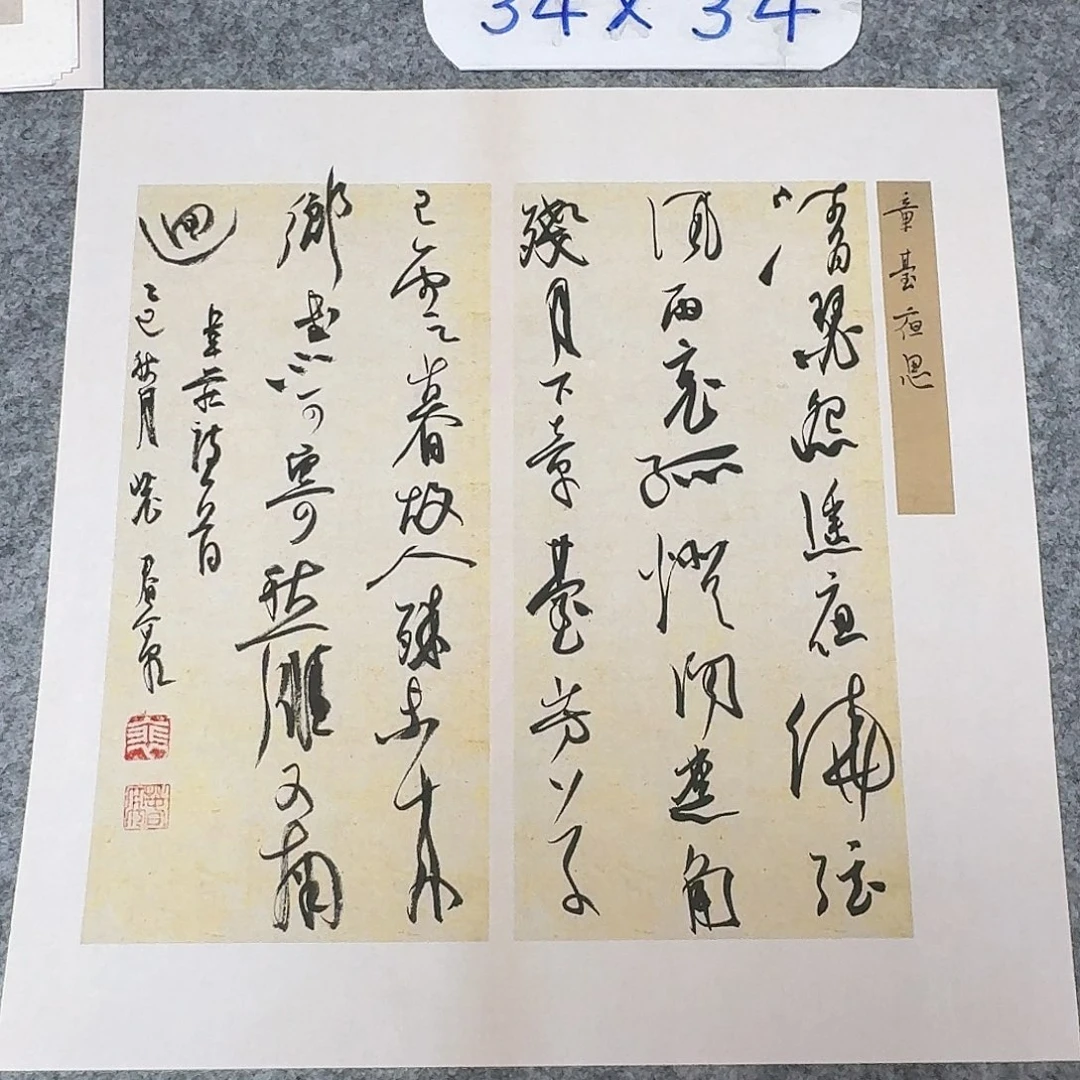 34 x 34
章臺夜思
清瑟怨遙夜繞弦
風雨哀孤燈聞楚角
殘月下章臺芳草
已雲暮故人殊未來
鄉書不可寄秋雁又南
迴
韋莊詩一首
乙巳秋月